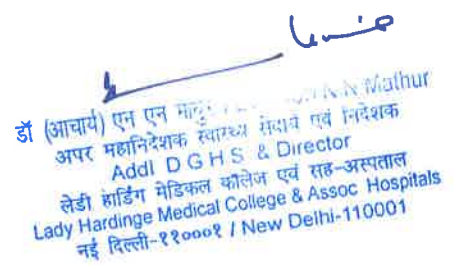 डॉ (आचार्य) एन एन माथुर N N Mathur
अपर महानिदेशक स्वास्थ्य सेवायें एवं निदेशक
Addl D G H S & Director
लेडी हार्डिंग मेडिकल कॉलेज एवं सह-अस्पताल
Lady Hardinge Medical College & Assoc Hospitals
नई दिल्ली-११०००१ / New Delhi-110001